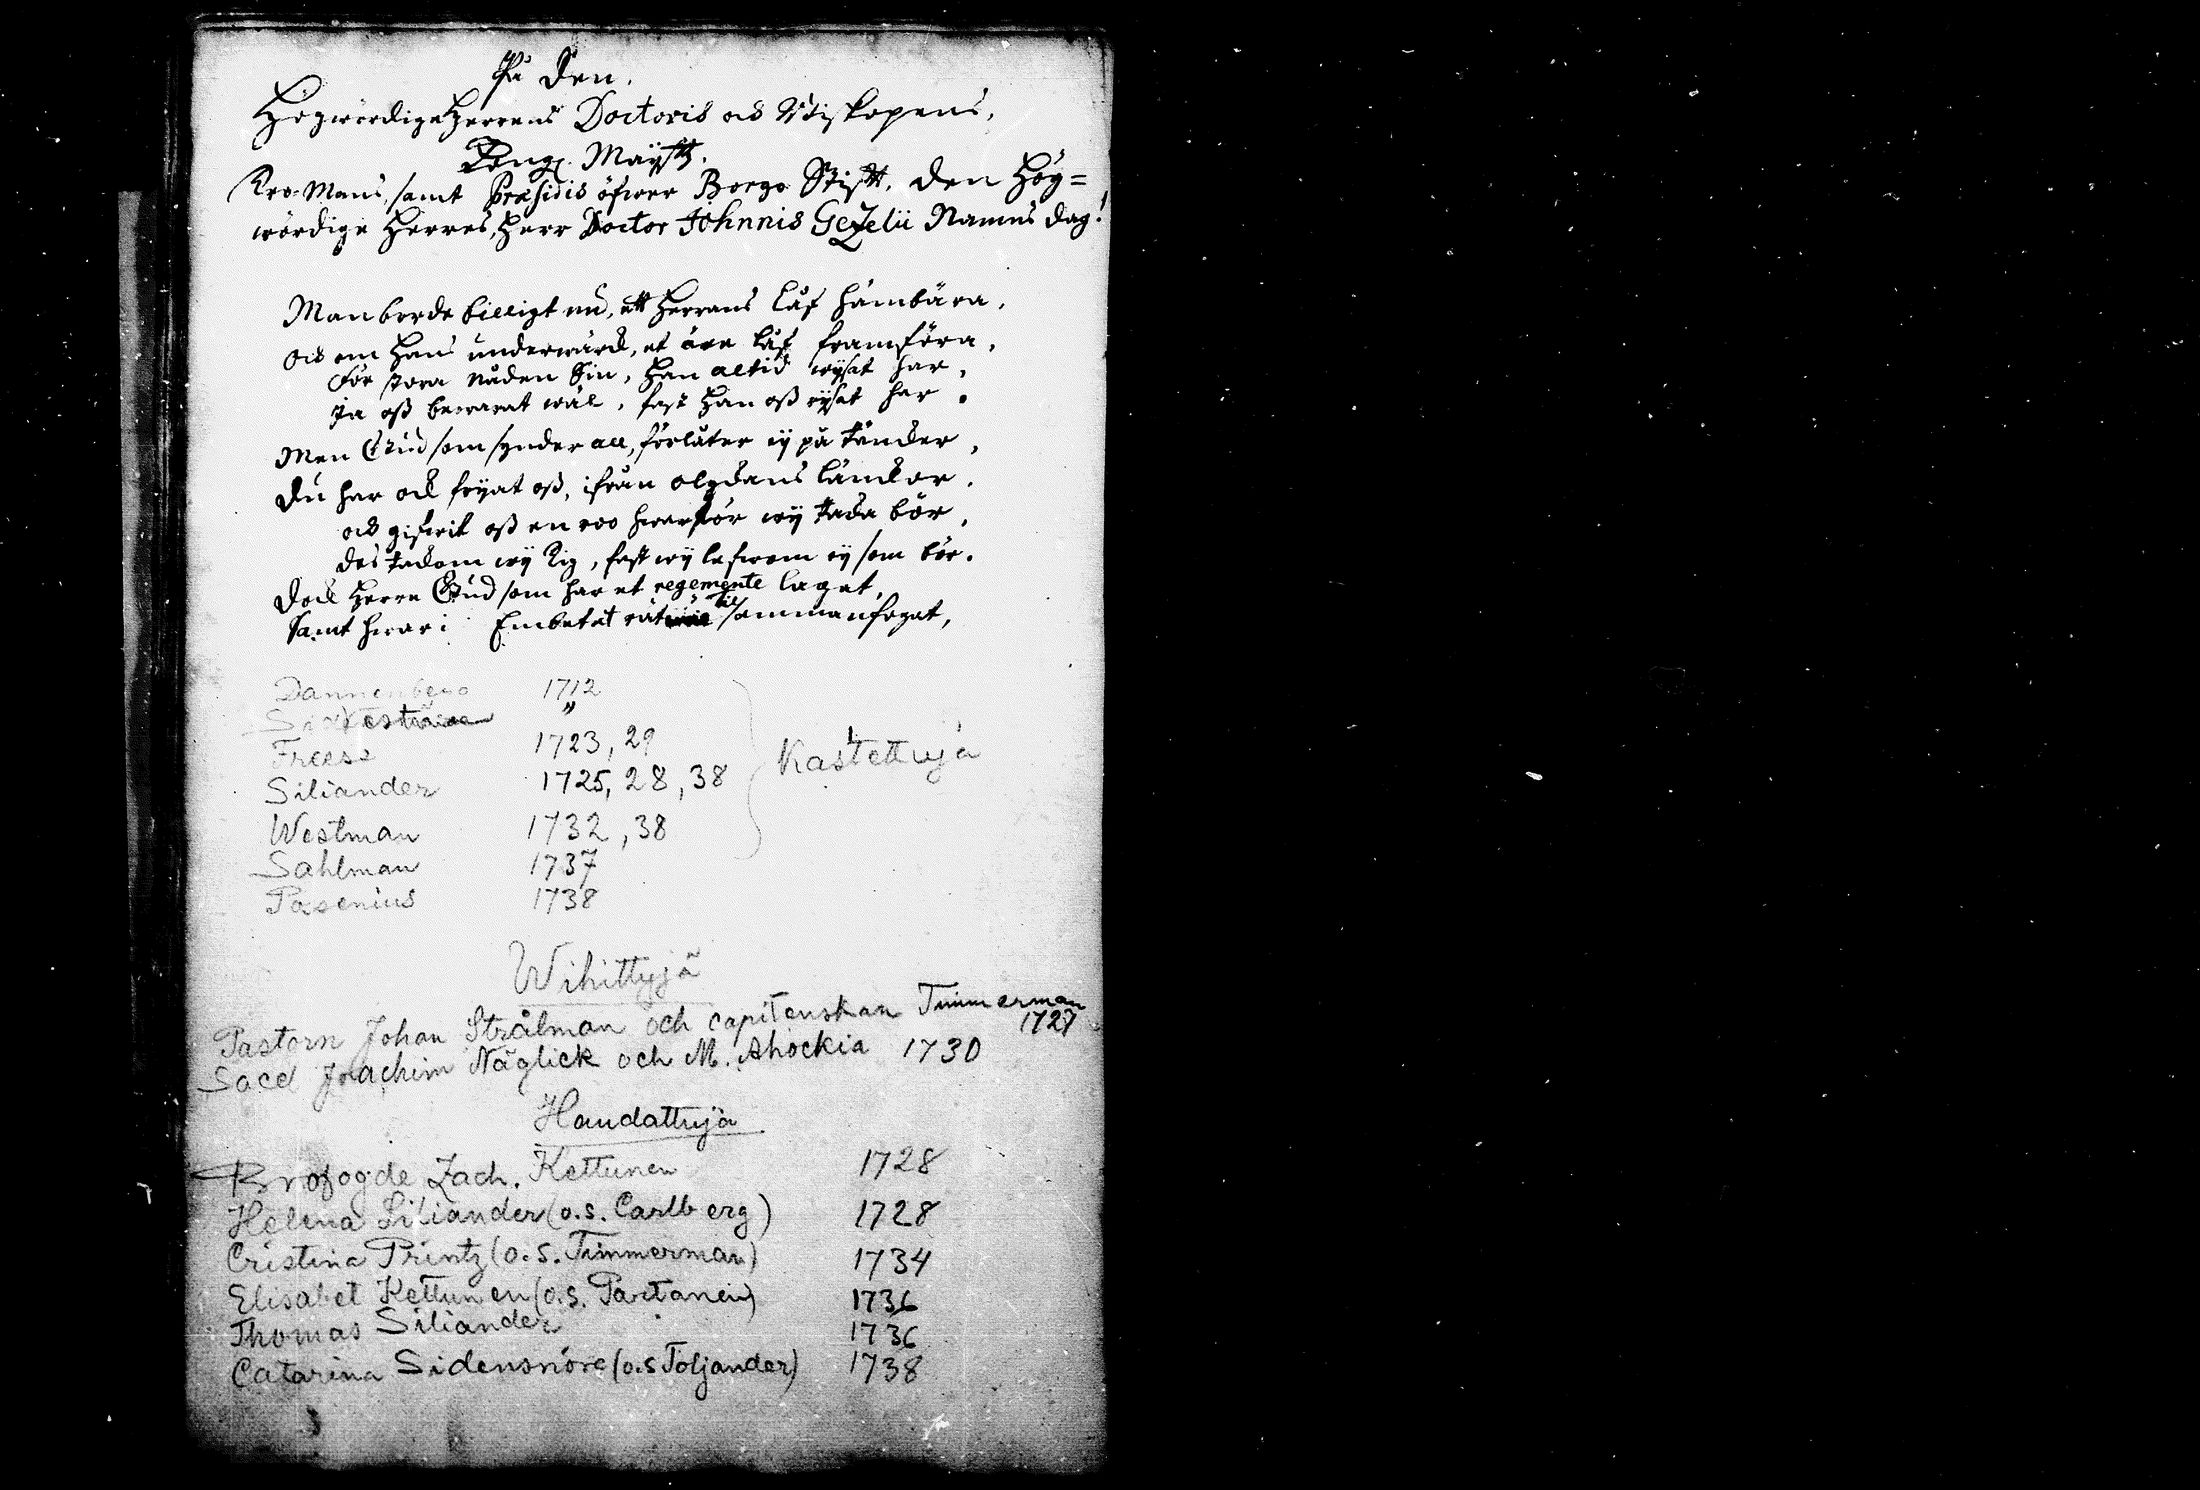 På Den.
Högwördige Herrens Doctoris och Biskopens,
Kongl. Mayttz.
Tro-Mans, samt Præsidis öfwer Borgo Stifft, Den Hög=
wördige Herres, Herr Doctor Johnnis Gezelii Namns dag!
Man borde billigt nu, ett Herrans låf hämbära,
och om Hans underwärck, et ära låf framföra,
För stora nåden Sin, Han altid wysat har,
Ja oß bewarat wäl, fast Han oß rysat har.
Men Gud som synder all, förlåter ey på tänder,
Du har ock fryat oß, ifrån olyckans länckor,
och gifwit oß en roo hwarför wy tacka bör,
Des tackom wy Tig, fast wy lefwom ey som bör.
Dock Herre Gud som har et regemente laget,
Samt hwar i Embetet rätt til sammanfogat,
Dannenberg 1712
"
Freese 1723, 29
Siliander 1725, 28, 38
Westman 1732, 38
Sahlman 1737
Pasenius 1738
Kastettuja
Wihittyjä
Pastorn Johan Strålman och capitenskan Timmerman
1727
Sacel Joachim Näglick och M. Ahockia 1730
Haudattuja
Brofogde Zach. Kettunen 1728
Helena Siliander (o.s. Carlberg) 1728
Cristina Printz (o.s. Timmerman) 1734
Elisabet Kettunen (o.s. Partanen) 1736
Thomas Siliander 1736
Catarina Sidensnöre (o.s Toljander) 1738